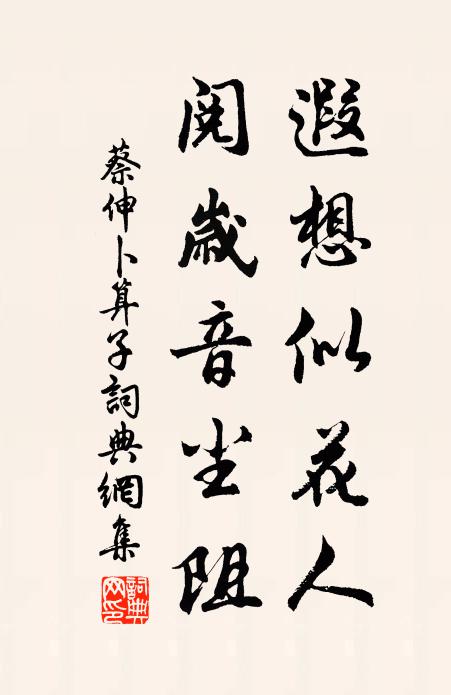 遐想似花人
閱歲音尘阻
蔡伸卜算子詞典網集
詞典网印